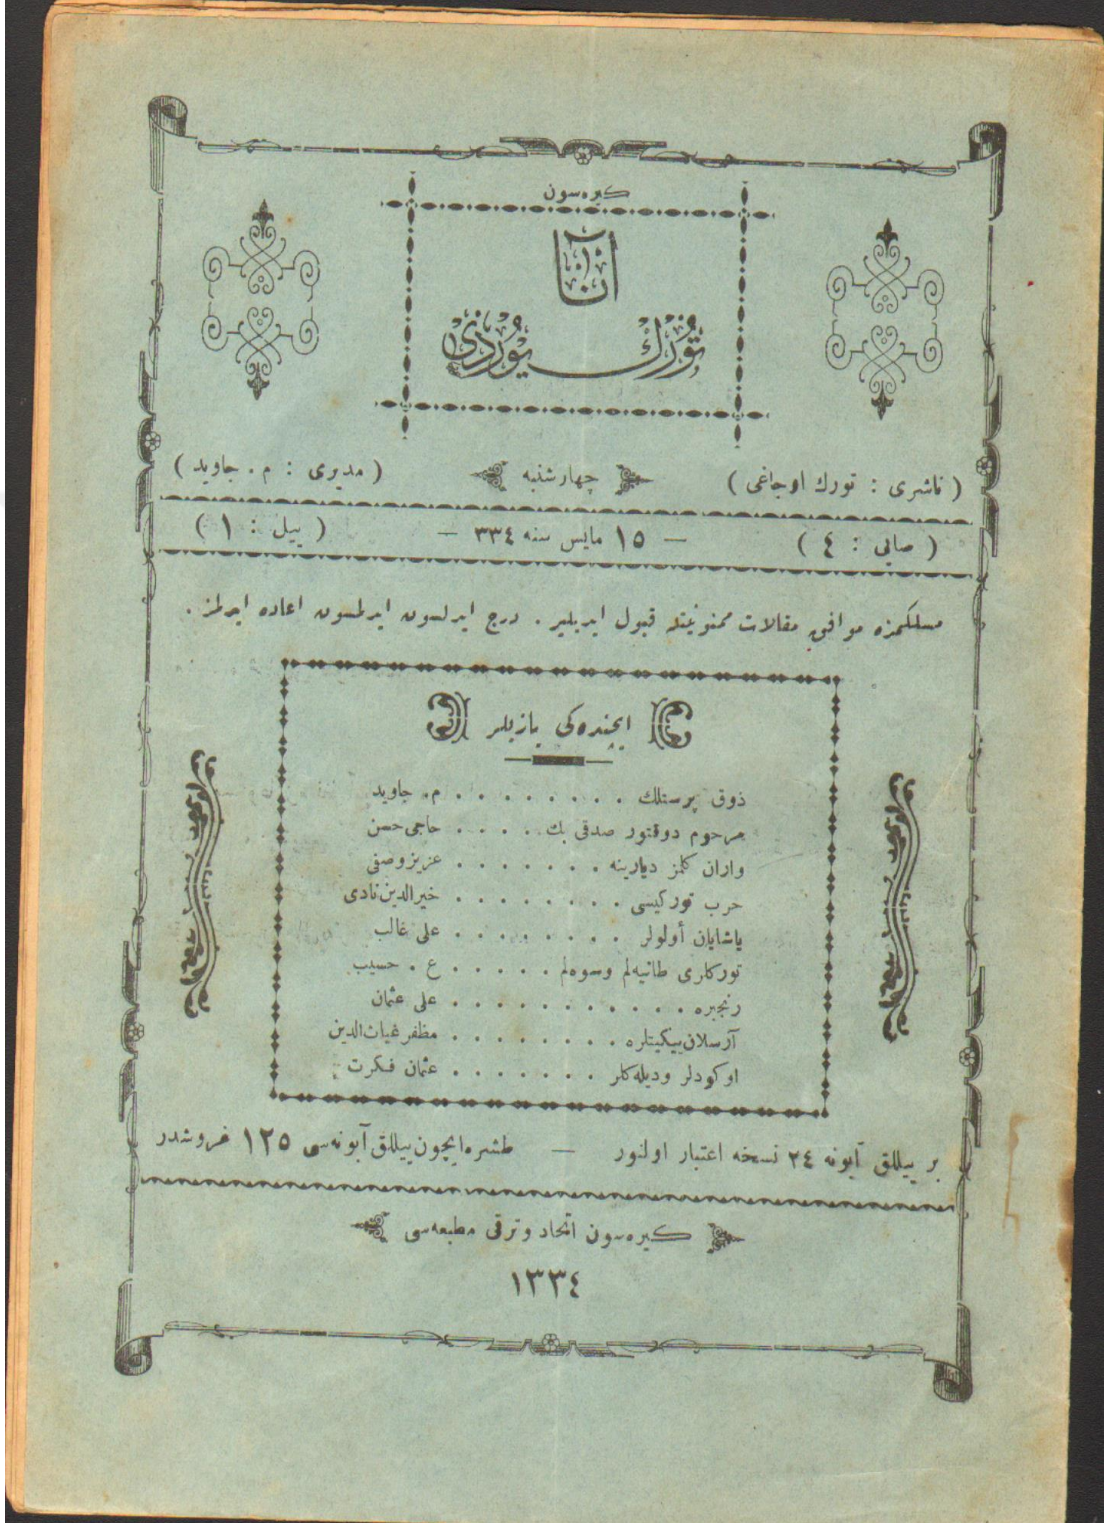 كيره‌سون
آنا
تورك يوردى
( ناشرى : تورك اوجاغى )
چهارشنبه
( مديرى : م . جاويد )
( صايى : ٤ )
— ١٥ مايس سنه ٣٣٤ —
( ييل : ١ )
مسلكمزه موافق مقالات ممنونيتله قبول ايديلير . درج ايدلسون ايدلمسون اعاده ايدلمز .
ايچنده‌كى يازيلر
ذوق پرستلك . . . . . . . . م . جاويد
مرحوم دوقتور صدقى بك . . . . . حاجى حسن
واران كلمز ديارينه . . . . . . . عزيز وصفى
حرب توركيسى . . . . . . . . خيرالدين نادى
ياشايان أولولر . . . . . . . . على غالب
توركلرى طانيه‌لم وسوه‌لم . . . . . ع . حسيب
رنجبره . . . . . . . . . . . على عثمان
آرسلان ييكيتلره . . . . . . . . مظفر غياث‌الدين
اوكودلر وديله‌كلر . . . . . . . عثمان فكرت
بر ييللق آبونه ٢٤ نسخه اعتبار اولنور — طشره ايچون ييللق آبونه‌سى ١٢٥ غروشدر
كيره‌سون اتحاد و ترقى مطبعه‌سى
١٣٣٤